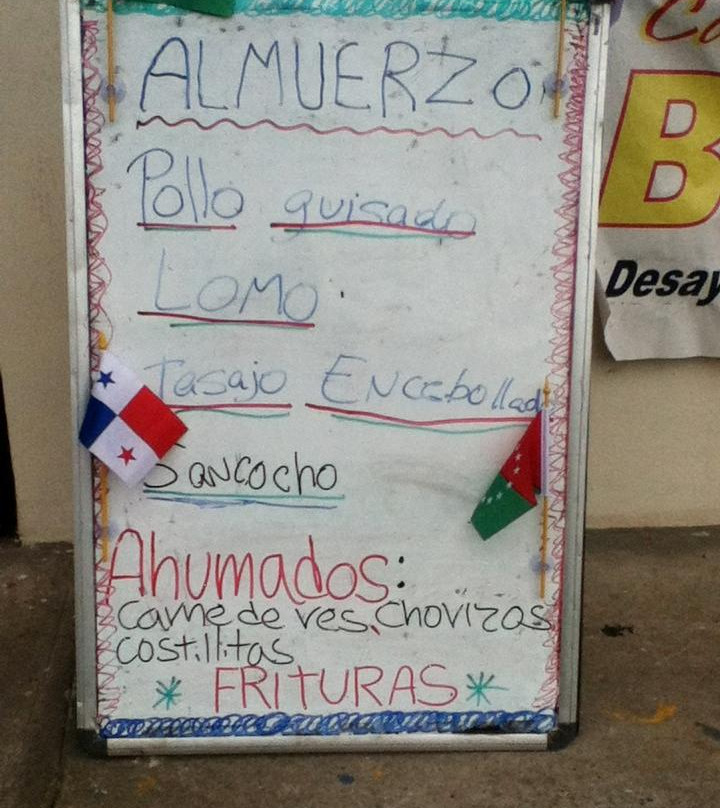 ALMUERZO
Pollo guisado
LOMO
Tasajo Encebollado
Sancocho
Ahumados:
carne de res, chorizos
costillitas
* FRITURAS *
B
Desay